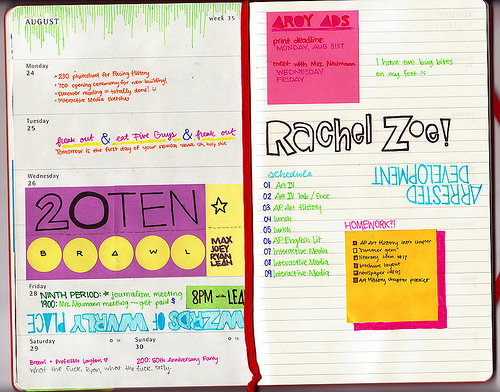 AUGUST
week 35
Monday
24
• 230 photoshoot for Facing History
• 700 opening ceremony for new building!
• summer reading = totally done!
• Interactive Media sketches
Tuesday
25
freak out & eat Five Guys & freak out
Tomorrow is the first day of your senior year. uh, holy shit.
Wednesday
26
20TEN
BRAWL
MAX
JOEY
RYAN
LEAH
Friday
28
NINTH PERIOD: * journalism meeting
1900: Mrs. Neumann meeting — get paid $
8PM with LEA
WIZARDS OF WAVERLY PLACE
Saturday
29
Sunday
30
Brawl + Professor Layton
What the fuck, Ryan, what the fuck.
200: 50th Anniversary Party
ARGY ADS
print deadline:
MONDAY, AUG 31ST
meet with Mrs. Neumann
WEDNESDAY
FRIDAY
I have two bug bites
on my foot
Rachel Zoe!
ARRESTED
DEVELOPMENT
schedule
01 Art IV
02 Art IV lab / free
03 AP Art History
04 lunch
05 lunch
06 AP English Lit
07 Interactive Media
08 Interactive Media
09 Interactive Media
HOMEWORK?!
AP Art History intro chapter
"Summer years"
literary terms
brochure layout
newspaper ideas
Art History chapter packet